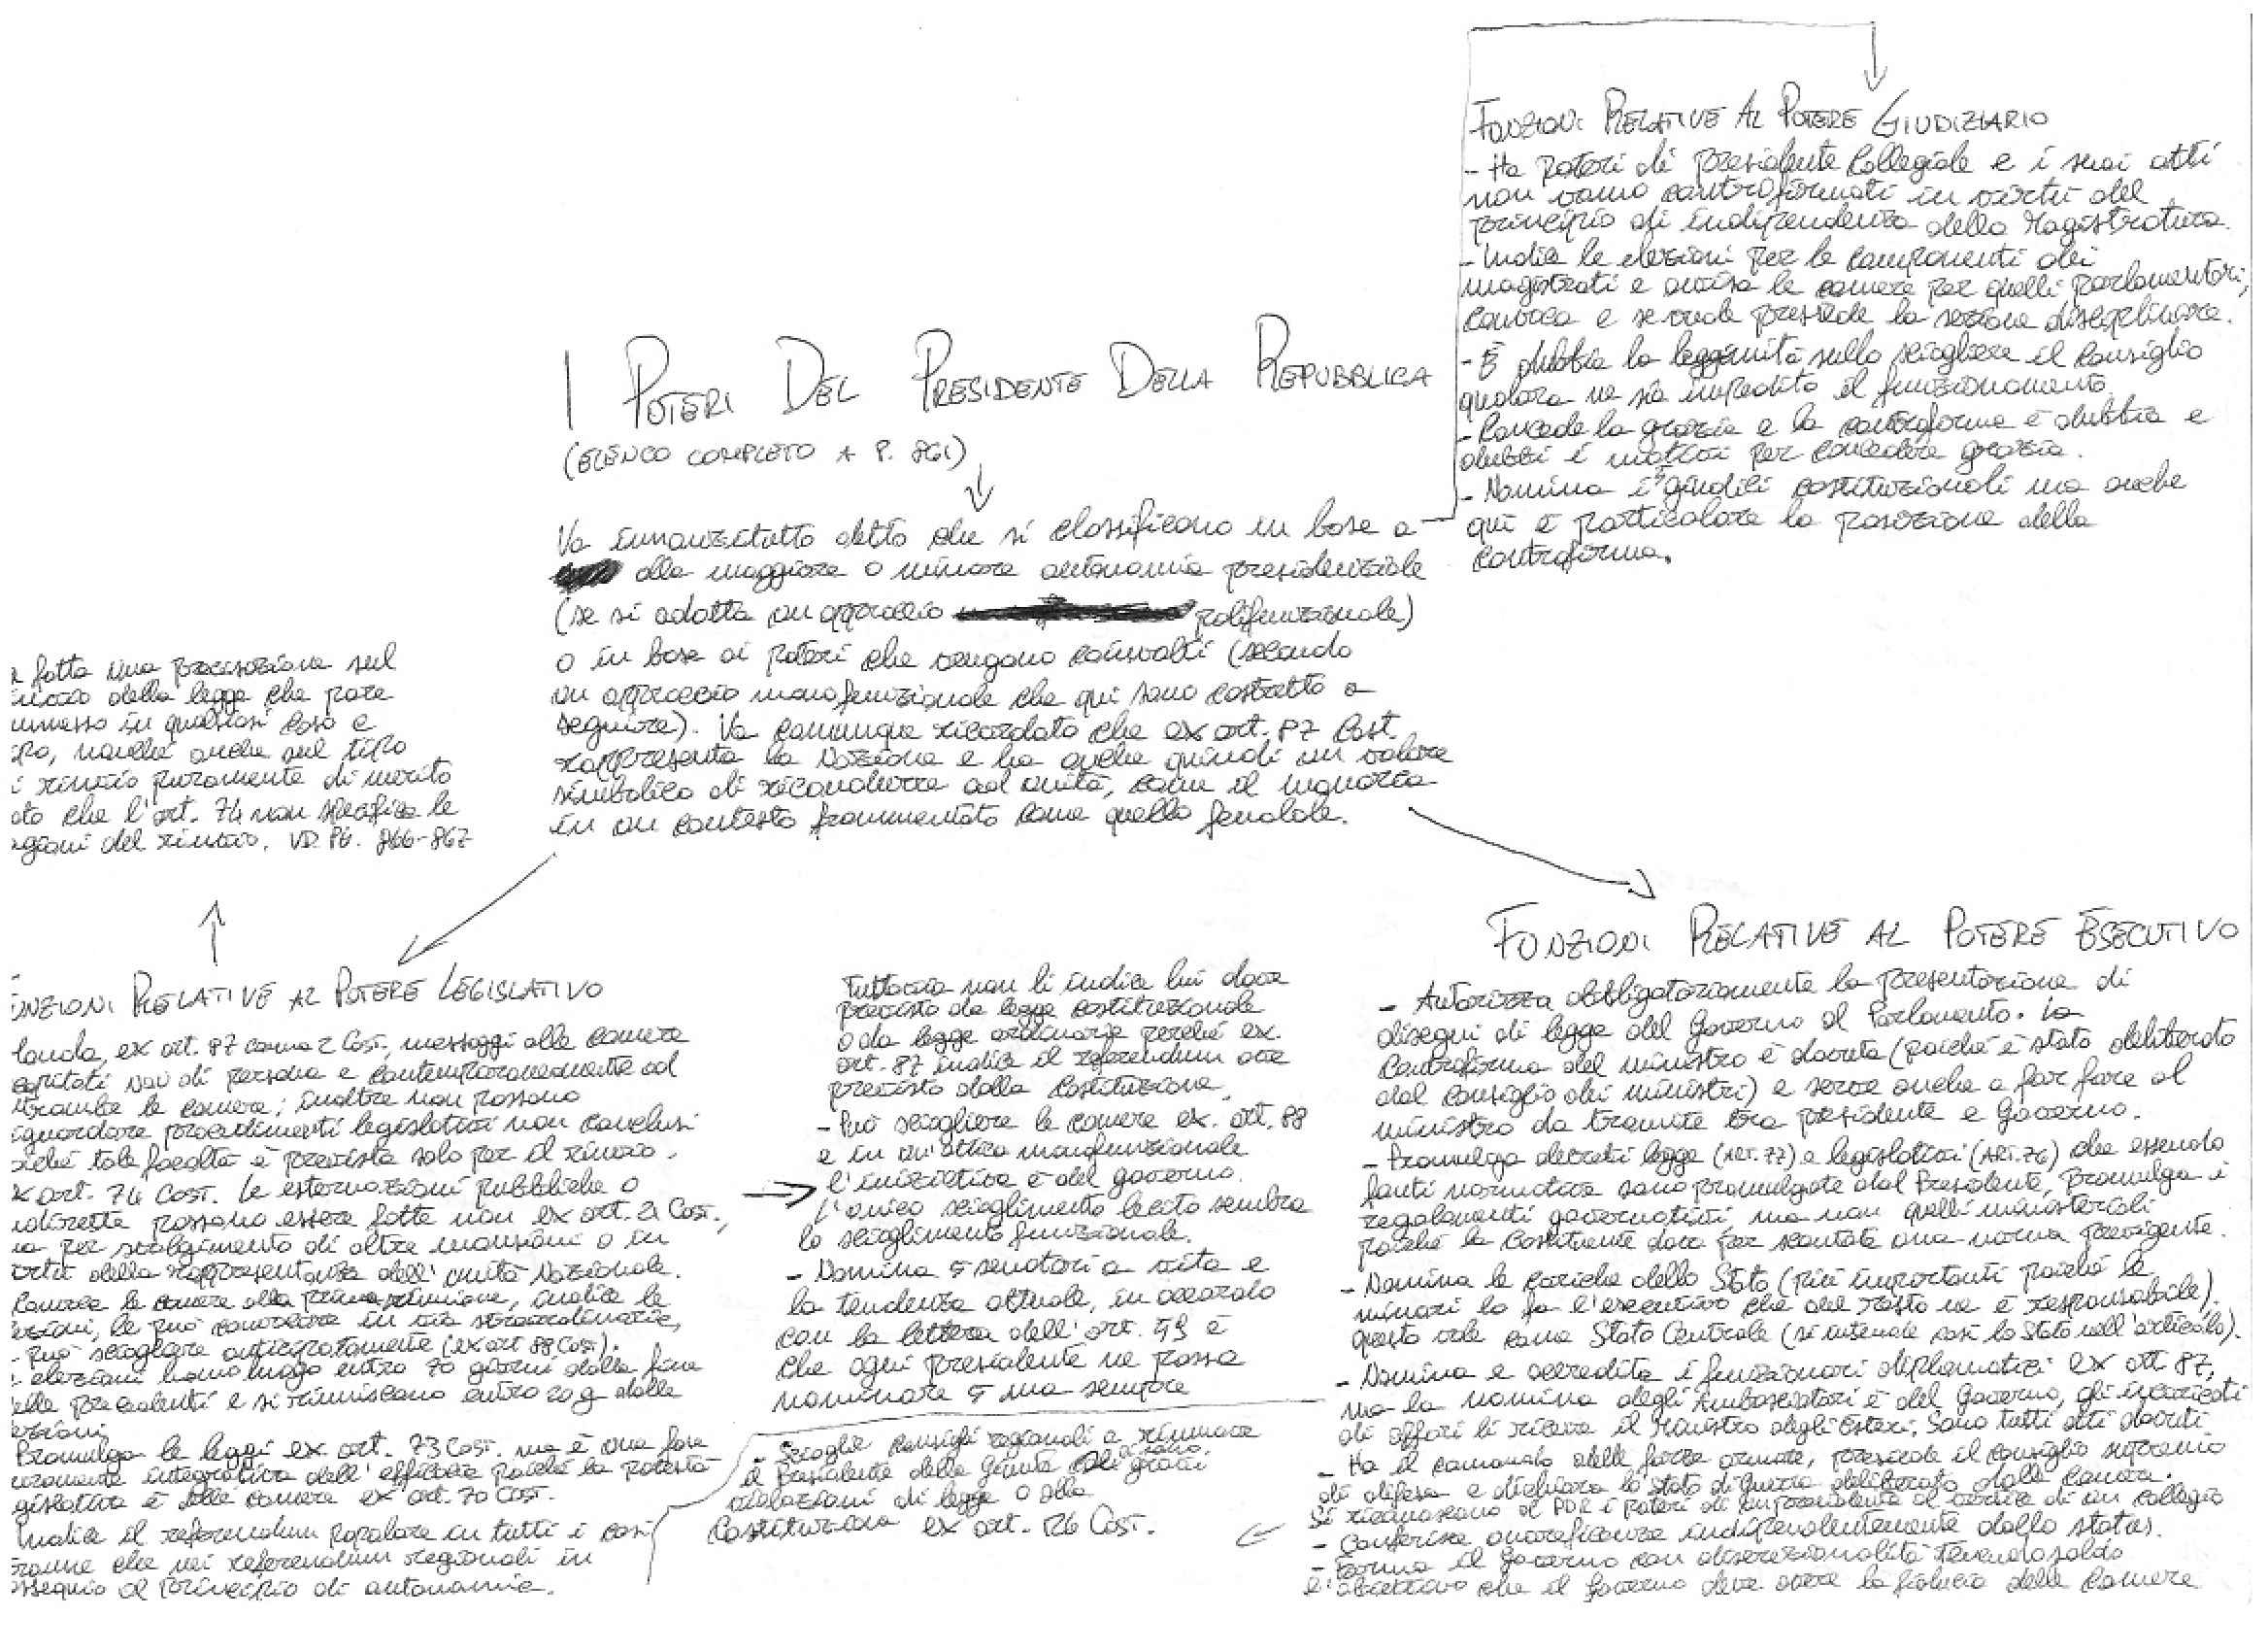 I POTERI DEL PRESIDENTE DELLA REPUBBLICA
(ELENCO COMPLETO A P. 861)
Va innanzitutto detto che si classificano in base a
alla maggiore o minore autonomia presidenziale
(se si adotta un approccio polifunzionale)
o in base ai poteri che vengono coinvolti (secondo
un approccio monofunzionale che qui sono costretto a
seguire). Va comunque ricordato che ex art. 87 Cost.
rappresenta la Nazione e ha anche quindi un valore
simbolico di ricondurre ad unità, come il monarca
in un contesto frammentato come quello feudale.
FUNZIONI RELATIVE AL POTERE GIUDIZIARIO
- Ha poteri di presidente collegiale e i suoi atti
non vanno controfirmati in virtù del
principio di indipendenza della Magistratura.
- Indice le elezioni per le componenti dei
magistrati e avvisa le camere per quelli parlamentari,
convoca e se vuole presiede la sezione disciplinare.
- È dubbia la leggimità sullo sciogliere il Consiglio
qualora ne sia impedito il funzionamento.
- Concede la grazia e la controfirma è dubbia e
dubbi i motivi per concedere grazia.
- Nomina i 5 giudici costituzionali ma anche
qui è particolare la posizione della
controfirma.
fatta una precisazione sul
della legge che pare
in qualsiasi caso e
nonché anche sul tipo
i rinvio puramente di merito
che l'art. 74 non specifica le
del rinvio. VD. PG. 866-867
RELATIVE AL POTERE LEGISLATIVO
ex art. 87 comma 2 Cost., messaggi alle camere
di persona e contemporaneamente ad
le camere; inoltre non possono
procedimenti legislativi non conclusi
tale facoltà è prevista solo per il rinvio.
art. 74 Cost. Le esternazioni pubbliche o
possono essere fatte non ex art. 21 Cost.,
per svolgimento di altre mansioni o in
della rappresentanza dell'unità Nazionale.
le camere alla prima riunione, indice le
le può convocare in via straordinaria,
- Può sciogliere anticipatamente (ex art 88 Cost.).
elezioni hanno luogo entro 70 giorni dalla fine
precedenti e si riuniscono entro 20 g dalle
Promulga le leggi ex art. 73 Cost. ma è una fase
integrativa dell'efficacia poiché la potestà
è delle camere ex art. 70 Cost.
Indice il referendum popolare in tutti i casi
che nei referendum regionali in
al principio di autonomia.
Tuttavia non li indice lui dove
previsto da legge costituzionale
o da legge ordinaria perché ex.
art. 87 indice il referendum ove
previsto dalla Costituzione.
- Può sciogliere le camere ex. art. 88
e in un'ottica monofunzionale
l'iniziativa è del governo.
L'unico scioglimento lecito sembra
lo scioglimento funzionale.
- Nomina 5 senatori a vita e
la tendenza attuale, in accordo
con la lettera dell'art. 59 è
che ogni presidente ne possa
nominare 5 ma sempre
- Scioglie consigli regionali e rimuove
il Presidente della Giunta
violazioni di legge o alla
Costituzione ex art. 126 Cost.
FUNZIONI RELATIVE AL POTERE ESECUTIVO
- Autorizza obbligatoriamente la presentazione di
disegni di legge del Governo al Parlamento. La
controfirma del ministro è dovuta (poiché è stato deliberato
dal consiglio dei ministri) e serve anche a far fare al
ministro da tramite tra presidente e Governo.
- Promulga decreti legge (ART. 77) e legislativi (ART. 76) che essendo
fonti normative sono promulgate dal Presidente, Promulga i
regolamenti governativi, ma non quelli ministeriali
poiché la Costituente dava per scontata una norma previgente.
- Nomina le cariche dello Stato (più importanti poiché le
minori lo fa l'esecutivo che del resto ne è responsabile).
questo vale come Stato Centrale (si intende così lo Stato nell'articolo).
- Nomina e accredita i funzionari diplomatici ex art 87,
ma la nomina degli Ambasciatori è del Governo, gli incaricati
di affari li riceve il Ministro degli Esteri. Sono tutti atti dovuti.
- Ha il comando delle forze armate, presiede il consiglio supremo
di difesa e dichiara lo stato di guerra deliberato dalle camere.
Si riconoscono al PDR i poteri di un presidente al vertice di un collegio
- Conferisce onorificenze indipendentemente dallo status.
- Forma il Governo con discrezionalità tenendo saldo
l'obiettivo che il Governo deve avere la fiducia delle Camere